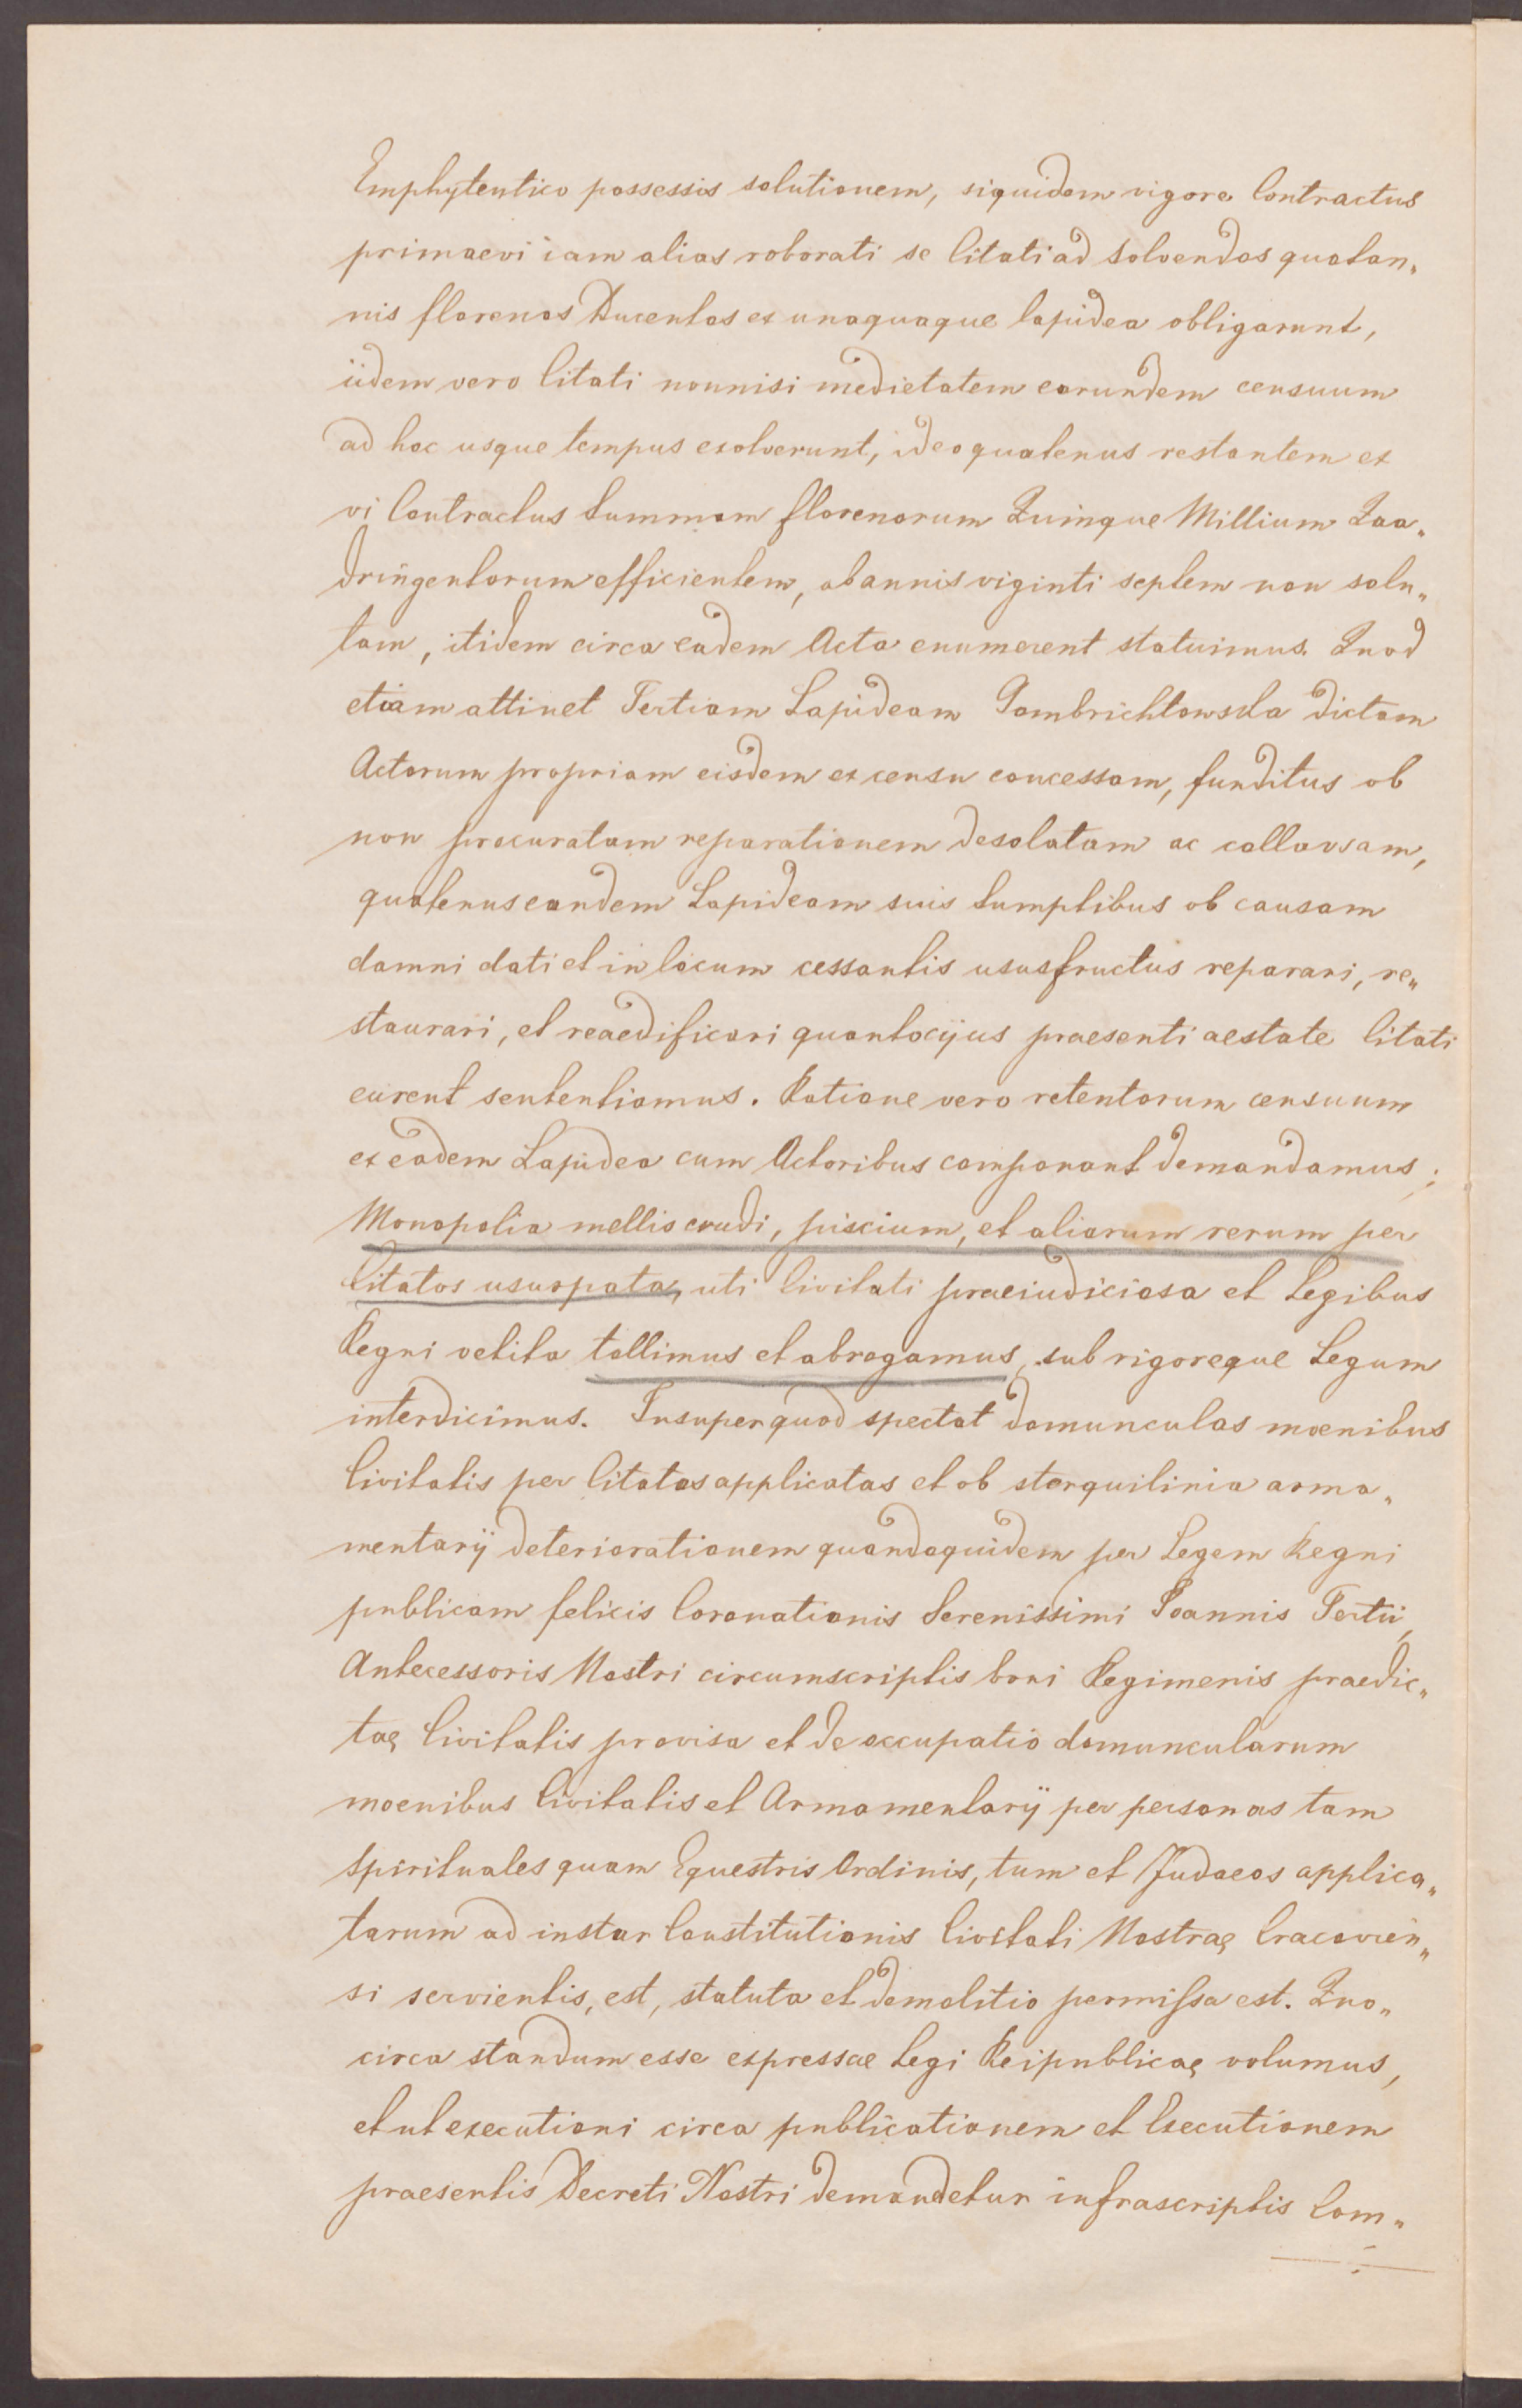 Emphyteutico possessis solutionem, siquidem vigore Contractus
primaevi iam alias roborati se Citati ad solvendos quotan„
nis florenos Ducentos ex unaquaque lapidea obligarunt,
iidem vero Citati nonnisi medietatem eorundem censuum
ad hoc usque tempus exolverunt, ideo quatenus restantem ex
vi Contractus Summam florenorum Quinque Millium Qua„
dringentorum efficientem, ab annis viginti septem non solu„
tam, itidem circa eadem Acta enumerent statuimus. Quod
etiam attinet Tertiam Lapideam Gombrichtowska dictam
Actorum propriam eisdem ex censu concessam, funditus ob
non procuratam reparationem desolatam ac collavsam,
quatenus eandem Lapideam suis sumptibus ob causam
damni dati et in locum cessantis ususfructus reparari, re„
staurari, et reaedificari quantocijus praesenti aestate Citati
curent sententiamus. Ratione vero retentorum censuum
ex eadem Lapidea cum Actoribus componant demandamus;
Monopolia mellis crudi, piscium, et aliarum rerum per
Citatos usurpata, uti Civitati praeiudiciosa et Legibus
Regni vetita tollimus et abrogamus, sub rigoreque Legum
interdicimus. Insuper quod spectat domunculas moenibus
Civitatis per Citatos applicatas et ob sterquilinia arma„
mentarij deteriorationem quandoquidem per Legem Regni
publicam felicis Coronationis Serenissimi Ioannis Tertii,
Antecessoris Nostri circumscriptis boni Regimenis praedic„
tae Civitatis provisa et de occupatio domuncularum
moenibus Civitatis et Armamentarij per personas tam
Spirituales quam Equestris Ordinis, tum et Judaeos applica„
tarum ad instar Constitutionis Civitati Nostrae Cracovien„
si servientis, est, statuta et demolitio permissa est. Quo„
circa standum esse expressae Legi Reipublicae volumus,
et ut executioni circa publicationem et Executionem
praesentis Decreti Nostri demandetur infrascriptis Com„